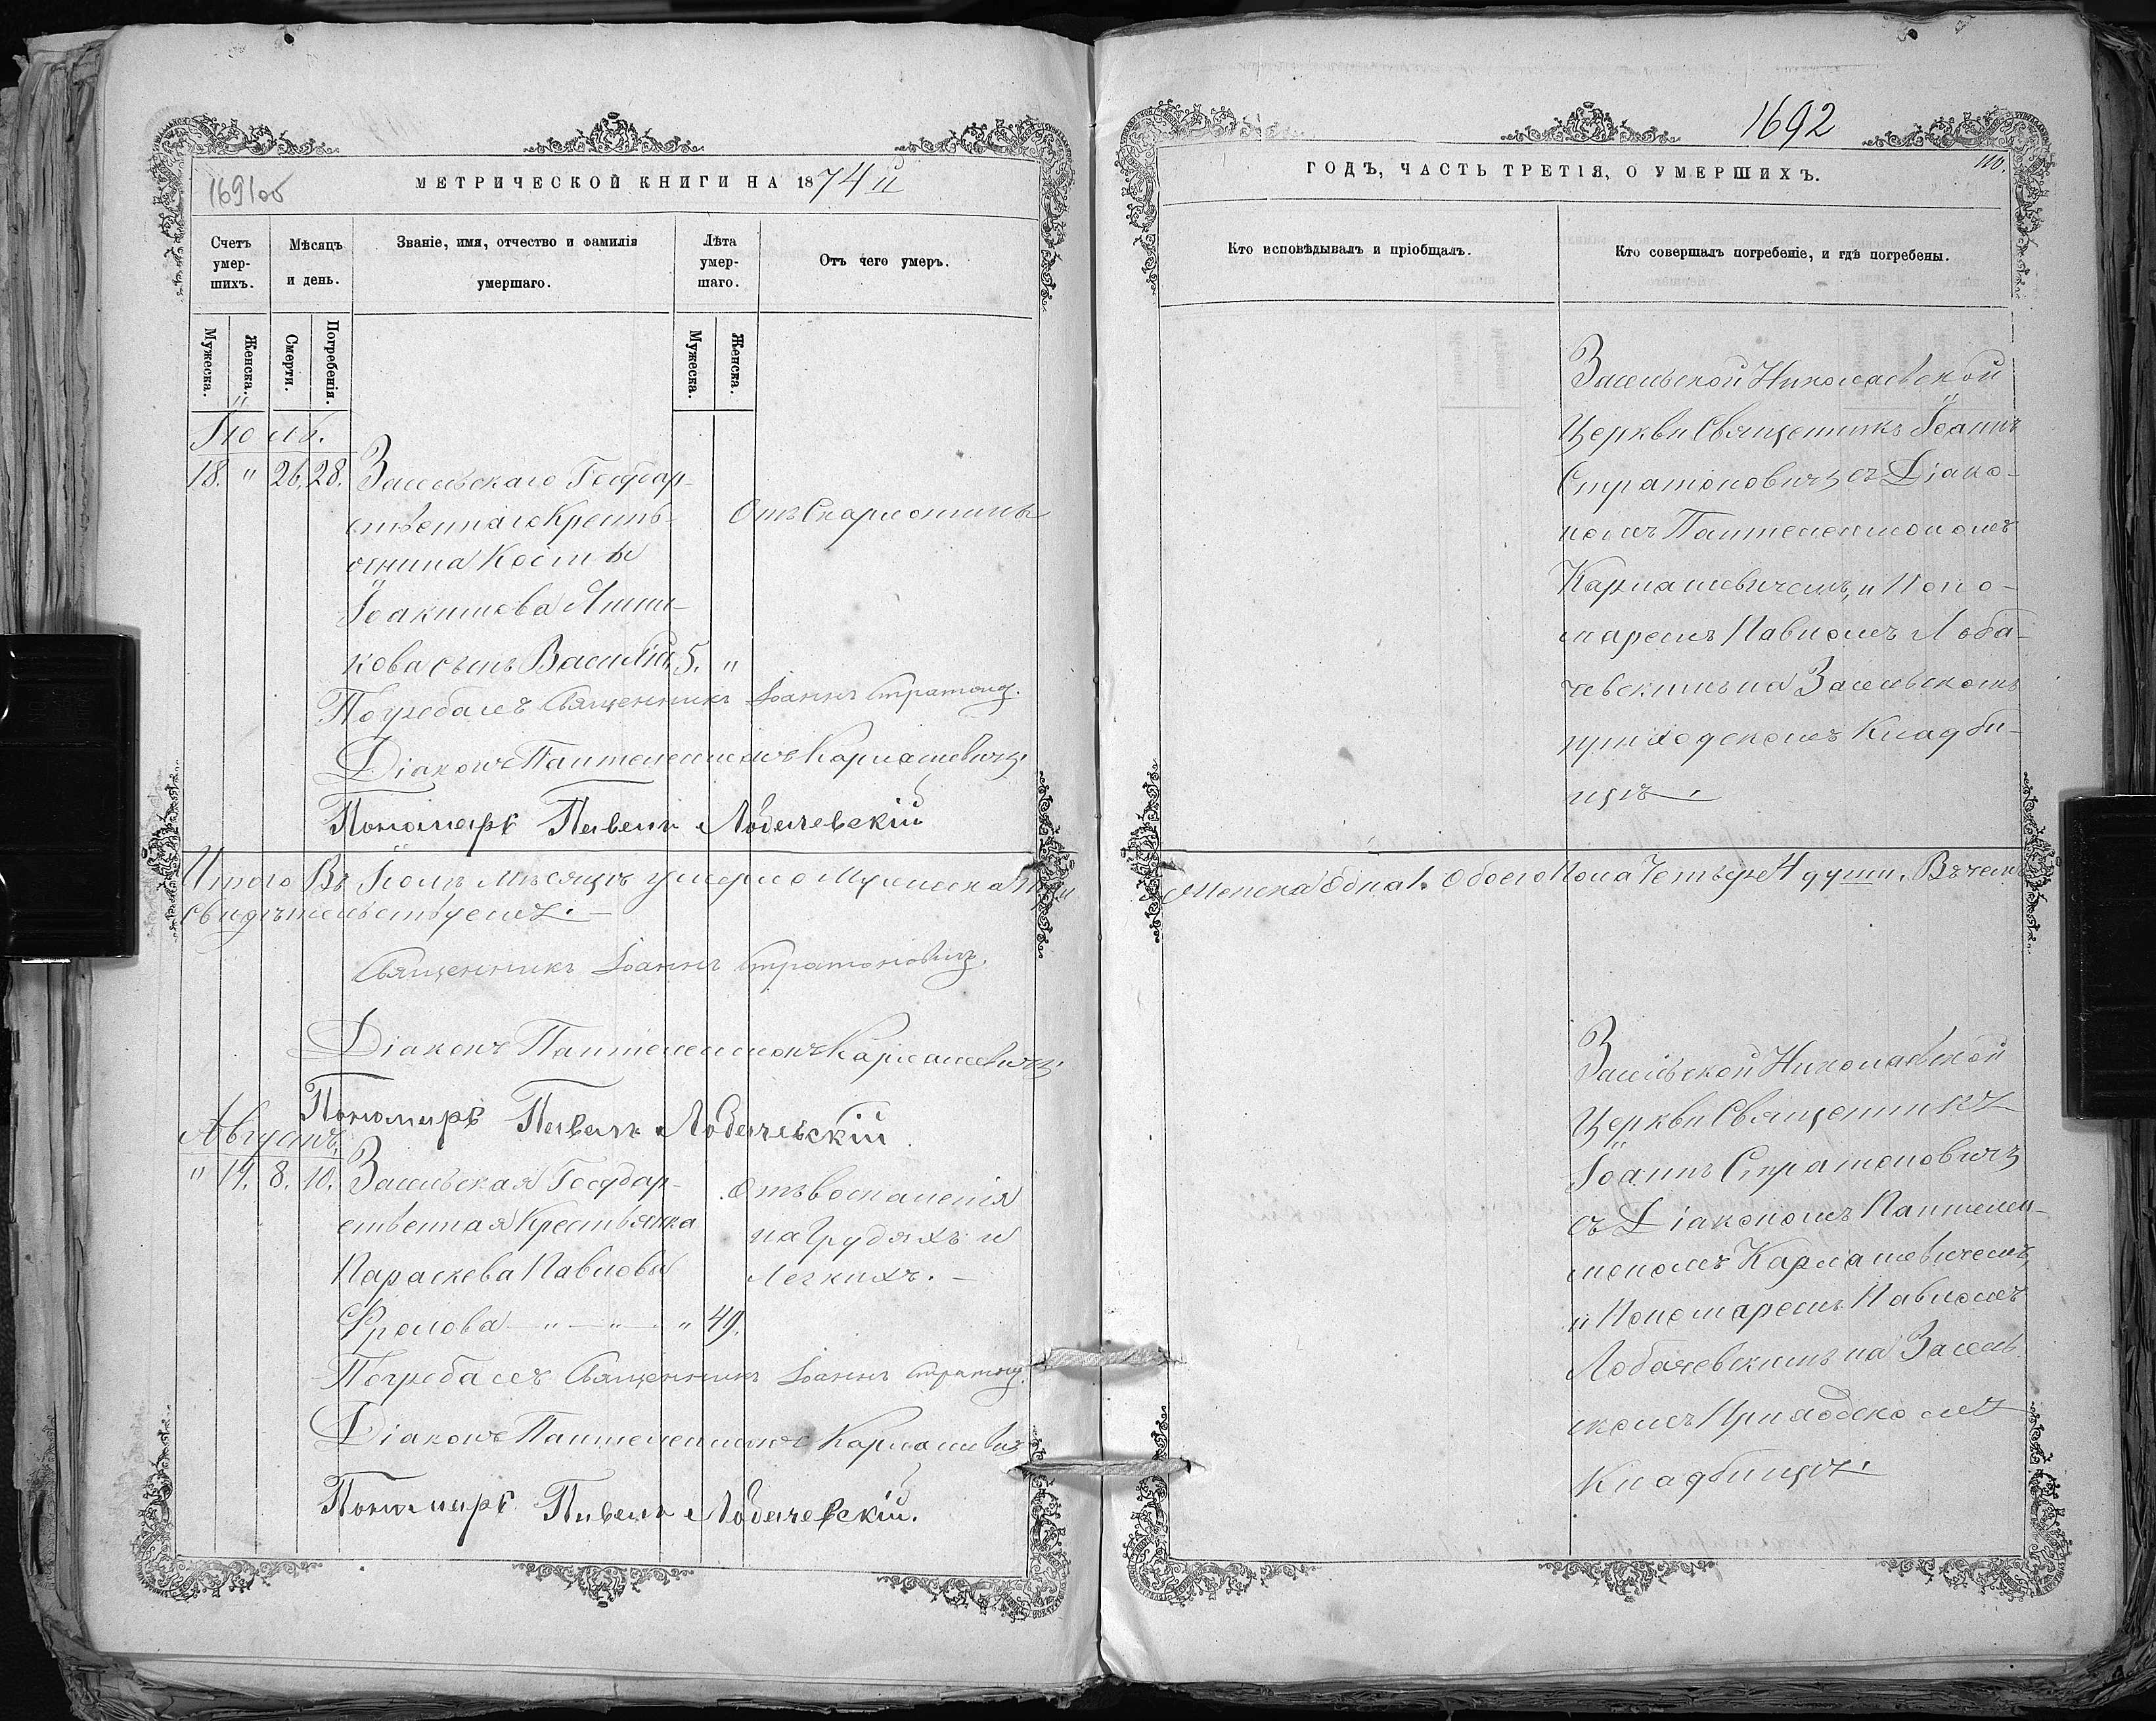 1691об
МЕТРИЧЕСКОЙ КНИГИ НА 1874й
Счетъ умер-шихъ.
Мѣсяцъ и день.
Званіе, имя, отчество и фамилія умершаго.
Лѣта умер-шаго.
Отъ чего умеръ.
Мужеска.
Женска.
Смерти.
Погребенія.
Мужеска.
Женска.
Іюль.
18. " 26. 28. Засельскаго Государ-
ственнаго Кресть-
янина Кости Отъ Скарлатины
Іоакимова
кова сынъ Василій 5. "
Погребалъ Священникъ Іоаннъ Стратонов.
Діаконъ Пантелеимонъ Кармашевичъ
Пономарь Павелъ Лобачевскій
Итого Въ Іюлѣ Мѣсяцѣ умерло Мужеска три
свидѣтельствуемъ. —
Священникъ Іоаннъ Стратоновичъ.
Діаконъ Пантелеимонъ Кармашевичъ
Пономарь Павелъ Лобачевскій
Августъ.
" 14. 8. 10. Засельская Государ- Отъ воспаленія
ственная Крестьянка на Грудяхъ и
Параскева Павлова Легкихъ. —
Фролова — " — " — " 49.
Погребалъ Священникъ Іоаннъ Стратонов.
Діаконъ Пантелеимонъ Кармашевичъ
Пономарь Павелъ Лобачевскій.
1692
110.
ГОДЪ, ЧАСТЬ ТРЕТІЯ, О УМЕРШИХЪ.
Кто исповѣдывалъ и пріобщалъ.
Кто совершалъ погребеніе, и гдѣ погребены.
Засельской Николаевской
Церкви Священникъ Іоаннъ
Стратоновичъ съ Діако-
номъ Пантелеимономъ
Кармашевичемъ, и Поно-
маремъ Павломъ Лоба-
чевскимъ на Засельскомъ
приходскомъ Кладби-
щѣ.
Женска одна 1. Обоего Пола Четыре 4 души. Въ чемъ
Засельской Николаевской
Церкви Священникъ
Іоаннъ Стратоновичъ
съ Діакономъ Пантелеи-
мономъ Кармашевичемъ,
и Пономаремъ Павломъ
Лобачевскимъ на Засель
скомъ Приходскомъ
Кладбищѣ.